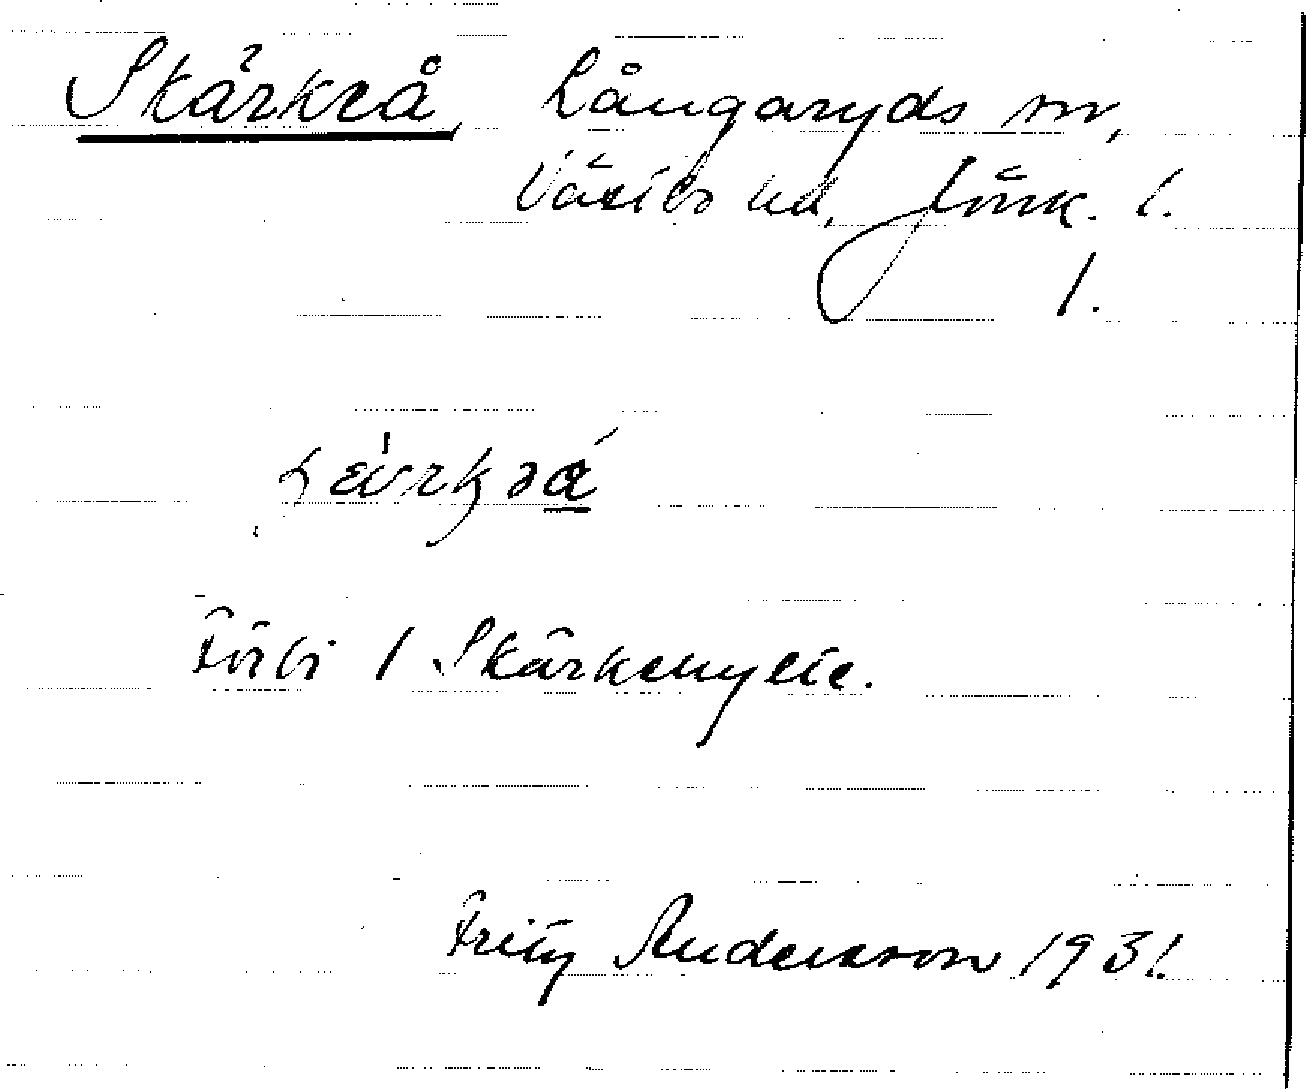 Skärkeå, Långaryds sn,
Västbo hd, Jönk. l.
1.
Förb. / Skärkemylte.
Fritz Andersson 1931.